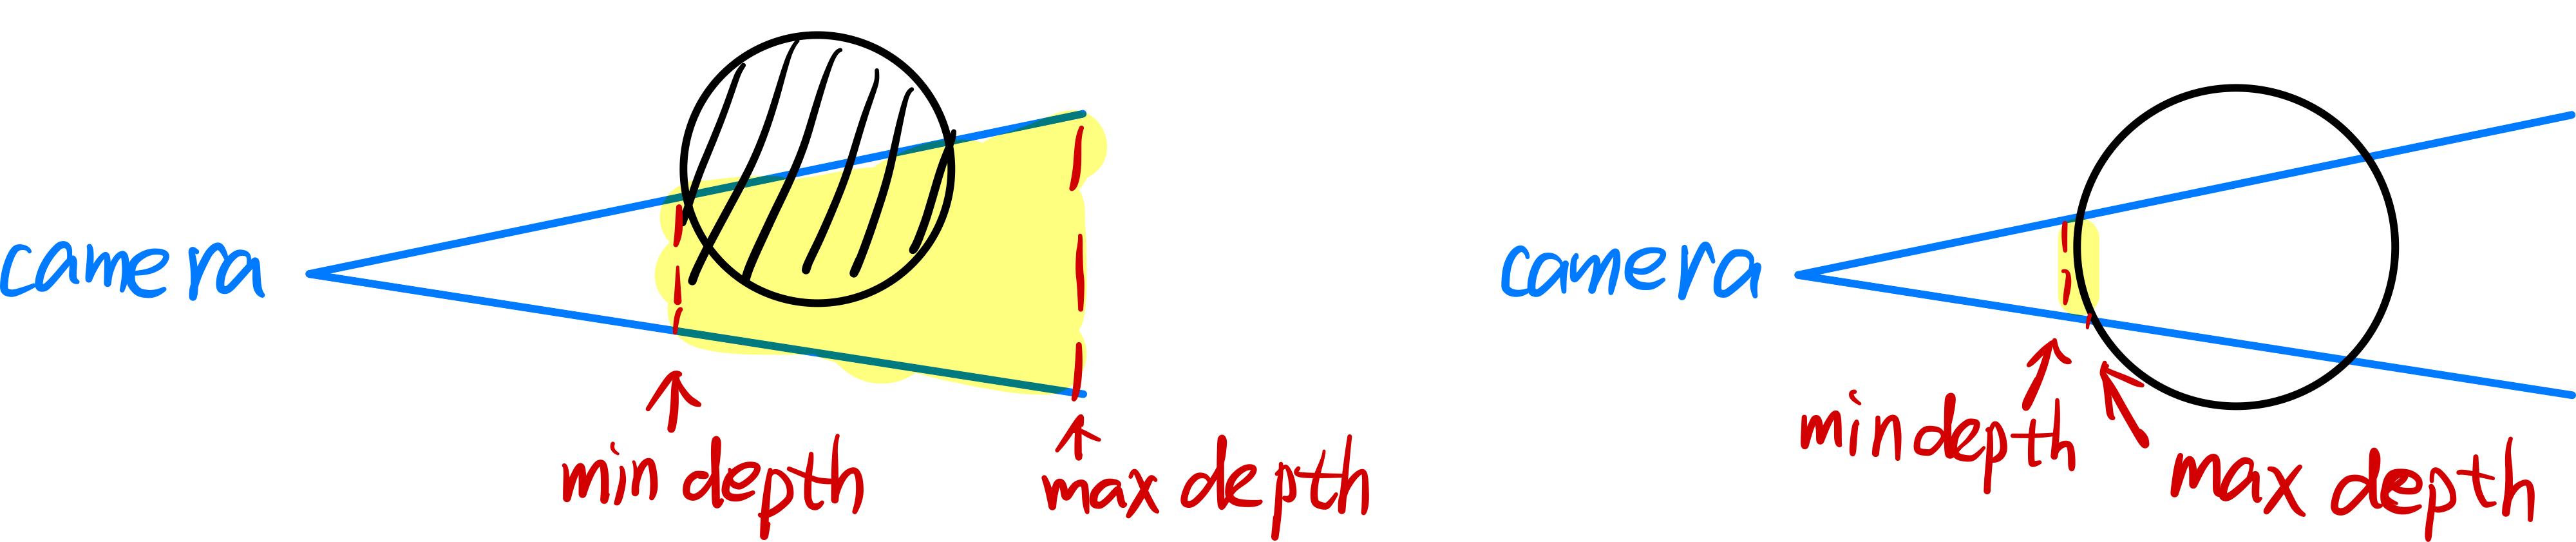 camera
min depth
max depth
camera
min depth
max depth